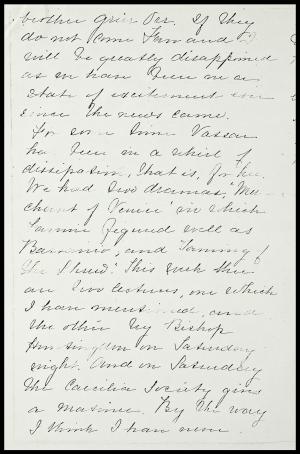 brother grieves. If they
do not come Fam and I
will be greatly disappointed
as we have been in a
state of excitement ever
since the news came.
For some time Vassar
has been in a whirl of
dissipation, that is, for her.
We had two dramas, "Mer-
chant of Venice" in which
Fannie figured well as
Bassanio, and "Taming of
the Shrew." This week there
are two lectures, one which
I have mentioned, and
the other by Bishop
Huntington on Saturday
night. And on Saturday
the Caecilia Society gives
a matinee. By the way
I think I have never